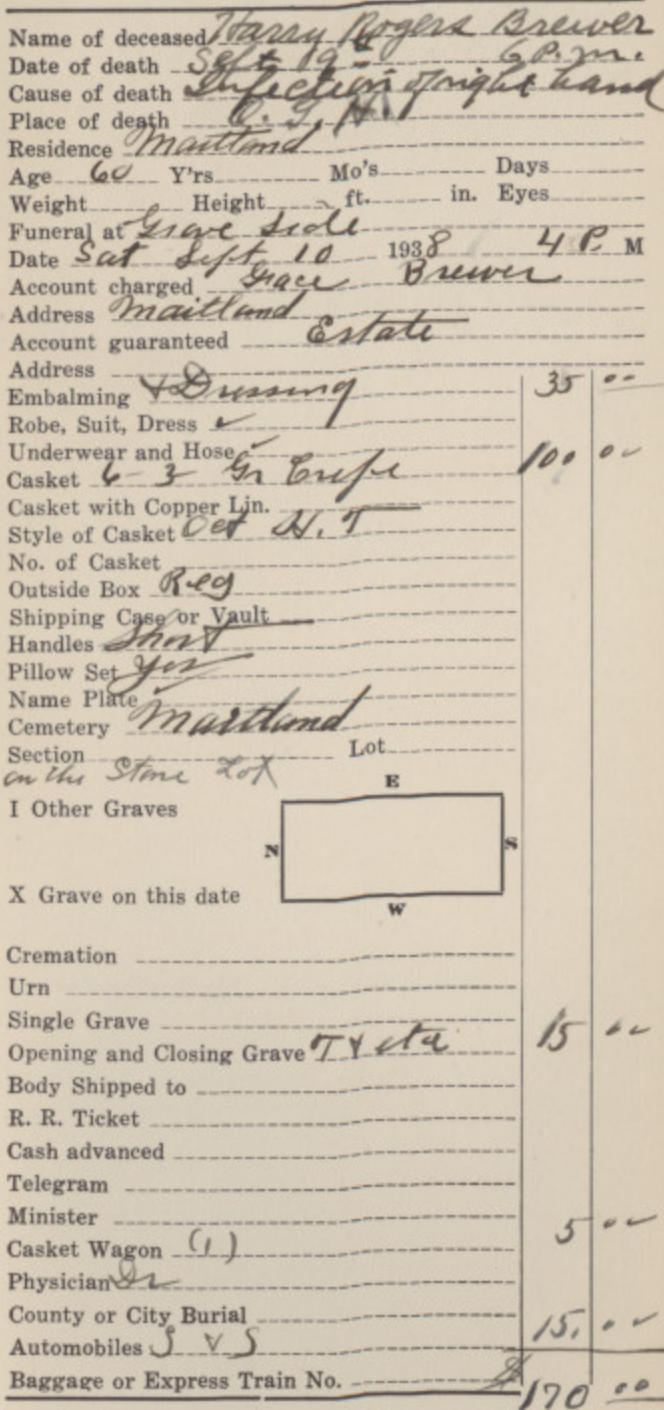 Name of deceased Harry Rogers Brewer
Date of death Sept 9 6 P.m.
Cause of death Infection of right hand
Place of death O. G. H
Residence Maitland
Age 60 Y'rs Mo's Days
Weight Height ft. in. Eyes
Funeral at Grave Side
Date Sat Sept. 10 1938 4 P. M
Account charged Grace Brewer
Address Maitland
Account guaranteed Estate
Address
Embalming & Dressing 35 00
Robe, Suit, Dress ✓
Underwear and Hose ✓
Casket 6-3 Gr Crepe 100 00
Casket with Copper Lin.
Style of Casket Oct H. T
No. of Casket
Outside Box Reg
Shipping Case or Vault
Handles Short
Pillow Set Yes
Name Plate
Cemetery Maitland
Section Lot
on the Stone Lot
I Other Graves
E
N
S
W
X Grave on this date
Cremation
Urn
Single Grave
Opening and Closing Grave T & etc 15 00
Body Shipped to
R. R. Ticket
Cash advanced
Telegram
Minister
Casket Wagon (1) 5 00
Physician Dr
County or City Burial
Automobiles S V S 15. 00
Baggage or Express Train No. $170 00